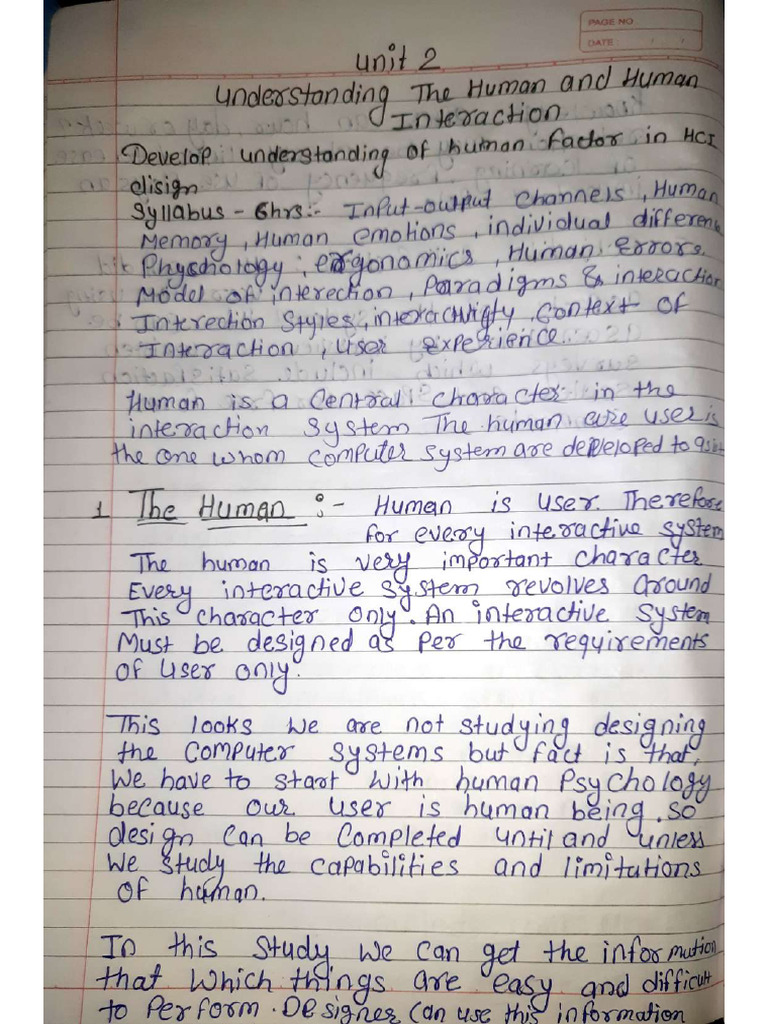 PAGE NO
DATE: / /
Unit 2
Understanding The Human and Human
Interaction
Develop understanding of human factor in HCI
disign
Syllabus - 6hrs:- Input-output channels, Human
Memory, Human emotions, individual differenc
Phychology, ergonomics, Human Errors.
Model of interection, Paradigms & interaction
Interection Styles, interactivity, Context of
Interaction, User Experience.
Human is a Central character in the
interaction system The human are user is
the one whom computer system are depleloped to
1 The Human :- Human is user. Therefore
for every interactive system
The human is very important character
Every interactive system revolves around
This character only. An interactive system
Must be designed as per the requirements
of user only.
This looks we are not studying designing
the computer systems but fact is that,
We have to start with human Psychology
because our user is human being. so
design can be completed until and unless
We study the capabilities and limitations
of human.
In this study we can get the information
that which things are easy and difficult
to perform. Designer can use this information